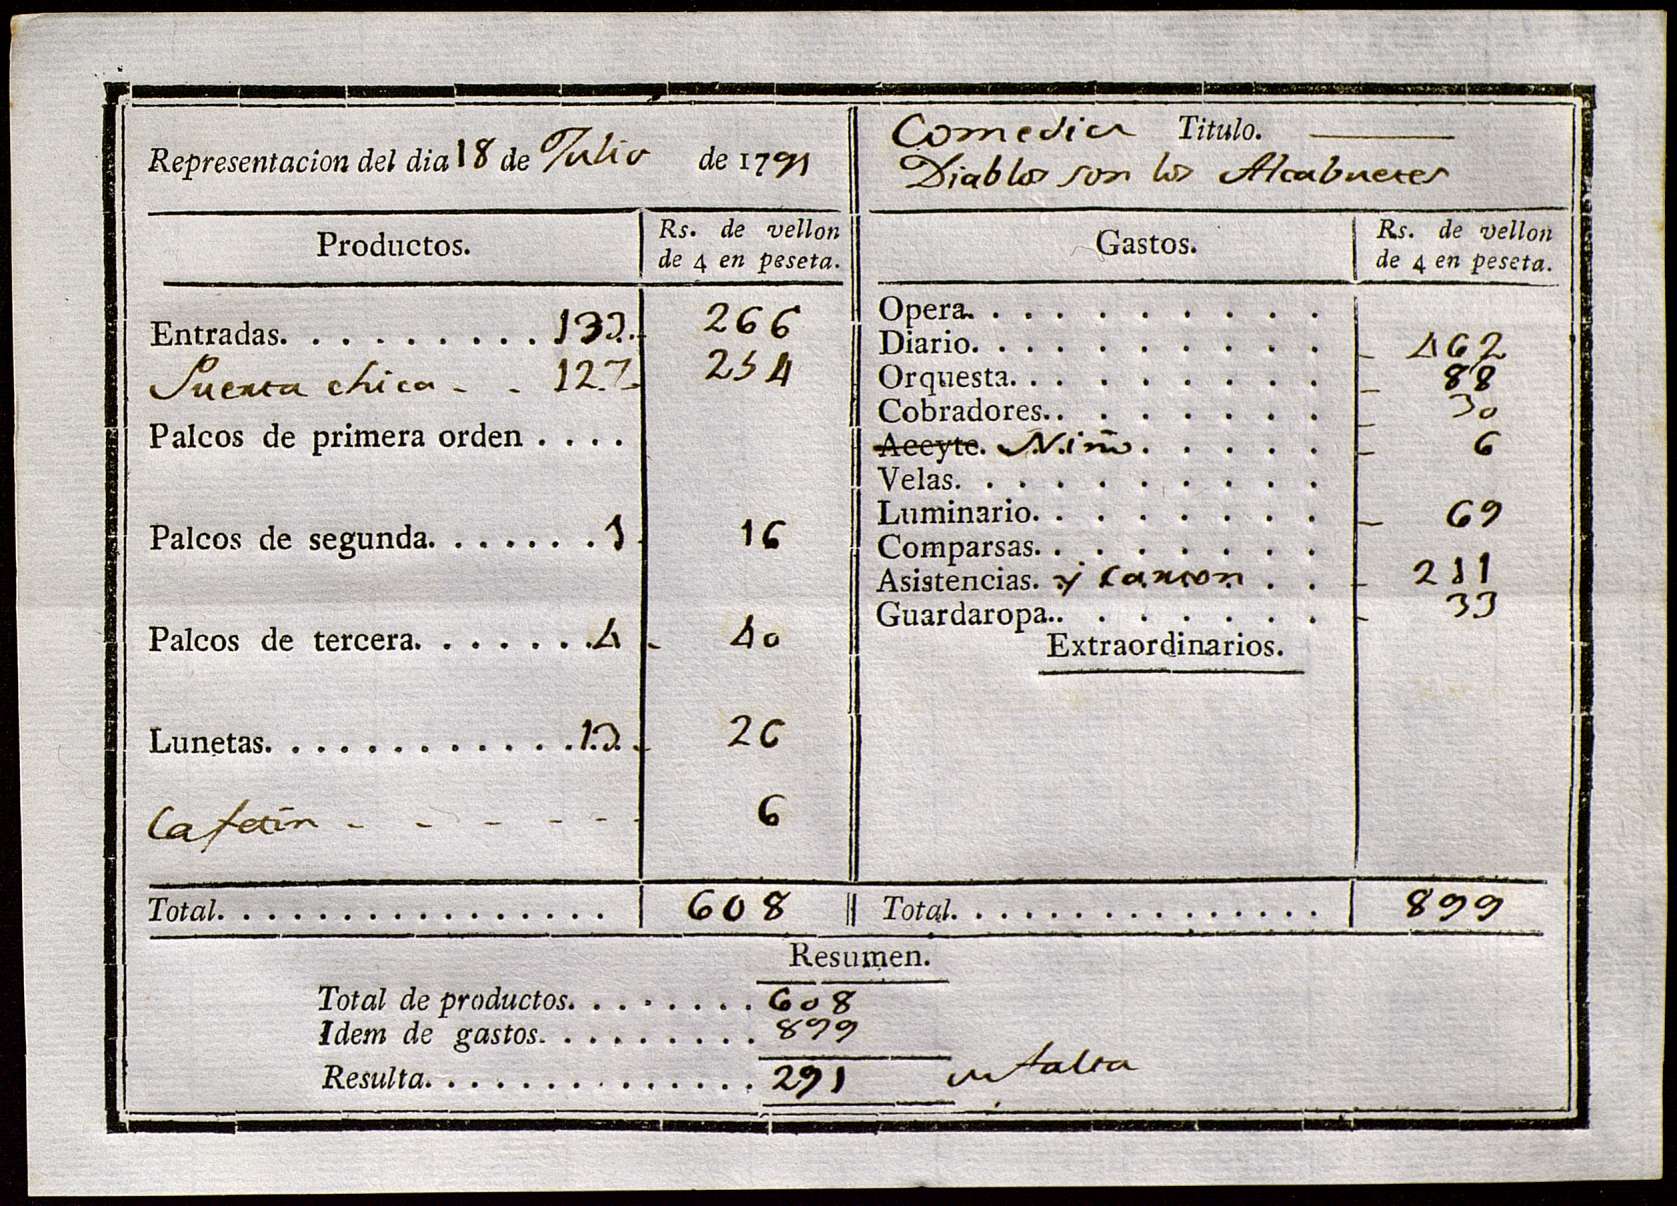 Representacion del dia 18 de Julio de 1791
Comedia Titulo.
Diablos son los Alcabuetes
Productos.
Rs. de vellon
de 4 en peseta.
Entradas. . . . . . . . . . 133. 266
Puerta chica - . 127. 254
Palcos de primera orden . . . .
Palcos de segunda. . . . . . . 1. 16
Palcos de tercera. . . . . . . 4 - 40
Lunetas. . . . . . . . . . . . 13. - 26
Cafetin - - - - - - 6
Total. . . . . . . . . . . . . . . . 608
Gastos.
Rs. de vellon
de 4 en peseta.
Opera. . . . . . . . . .
Diario. . . . . . . . . . - 462
Orquesta. . . . . . . . . - 88
Cobradores. . . . . . . . - 30
Aceyte. Niño. . . . . . - 6
Velas. . . . . . . . . .
Luminario. . . . . . . . - 69
Comparsas. . . . . . . .
Asistencias. y . . - 211
Guardaropa. . . . . . . . - 33
Extraordinarios.
Total. . . . . . . . . . . . . . . 899
Resumen.
Total de productos. . . . . . . . 608
Idem de gastos. . . . . . . . . 899
Resulta. . . . . . . . . . . . . . 291 en falta